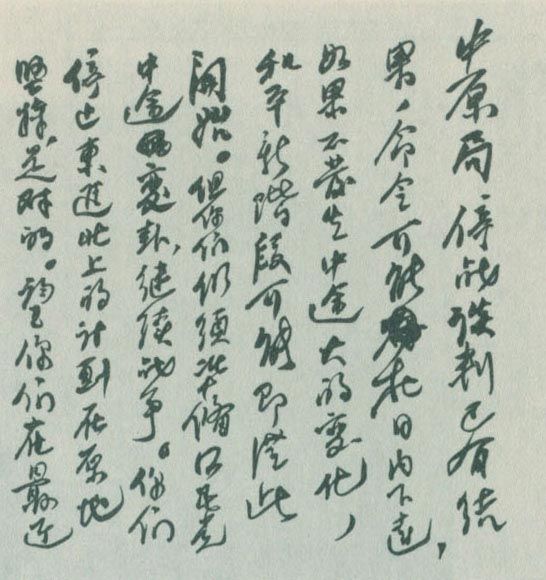 中原局 停战談判已有结
果，命令可能在日内下达，
如果不發生中途大的变化，
和平新階段可能即從此
開始。但你们仍须準備国民党
中途变卦，继續战争。你们
停止東進北上的计划在原地
坚持，是对的。望你们在最近